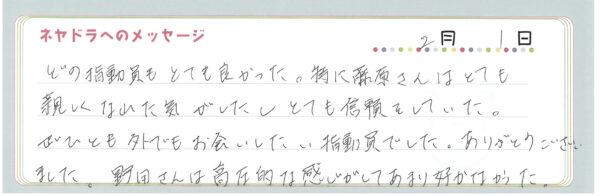 ネヤドラへのメッセージ
2月 1日
どの指動員も とても良かった。特に藤原さんはとても
親しくなれた気がしたし とても信頼をしていた。
ぜひとも外でもお会いしたい指動員でした。ありがとうござい
ました。野田さんは高圧的な感じがしてあまり好かなかった。